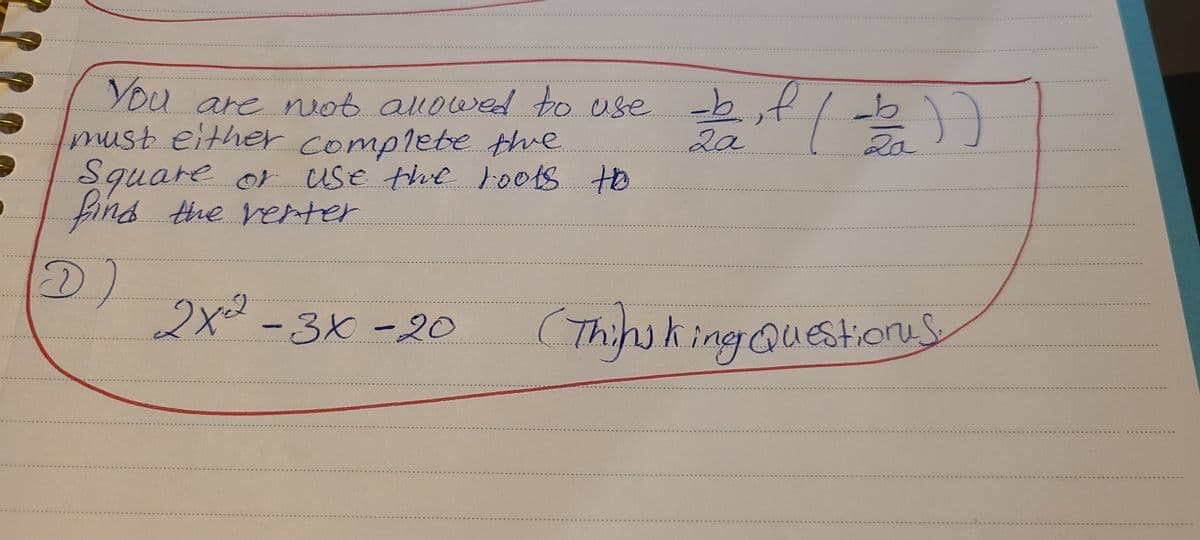 You are not allowed to use -b/2a, f(-b/2a))
must either complete the
Square or use the roots to
find the vertex
D)
2x² - 3x - 20 (Thinking Questions.